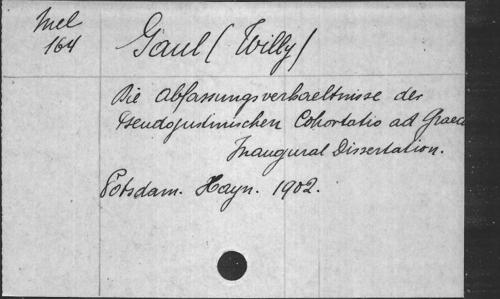 Mel
164
Gaul (Willy)
Die Abfassungsverhaeltnisse der
Pseudojustinischen Cohortatio ad Graec
Inaugural Dissertation.
Potsdam. Hayn. 1902.